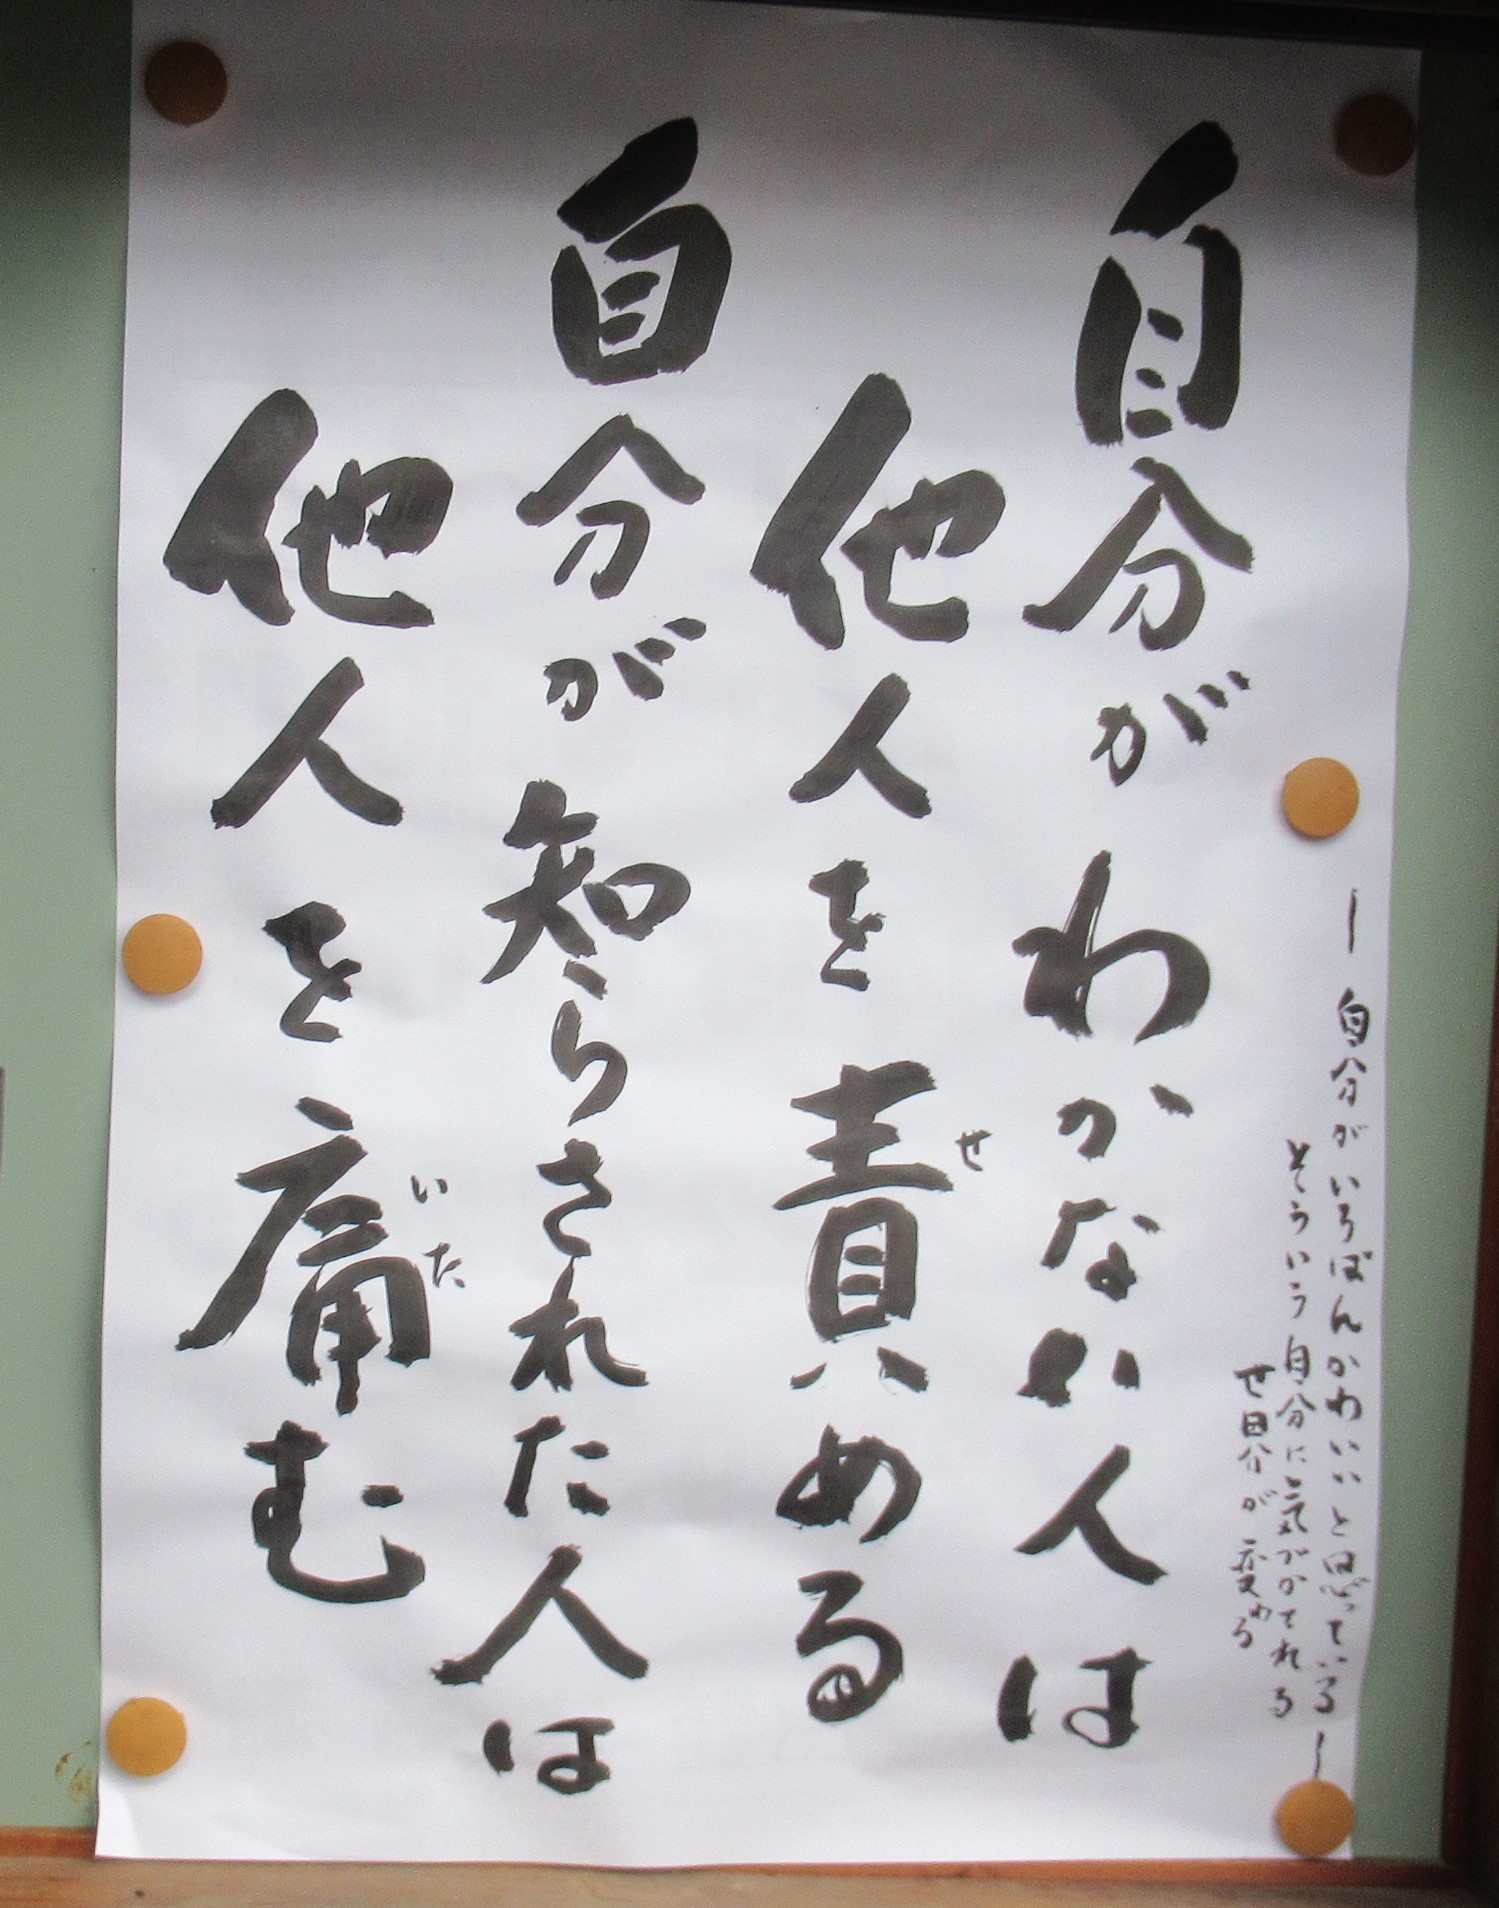 自分がわからない人は
他人を責める
せ
自分が知らされた人は
他人を痛む
いた
― 自分がいちばんかわいいと思っている ―
そういう自分に気がかされる
世界が変わる